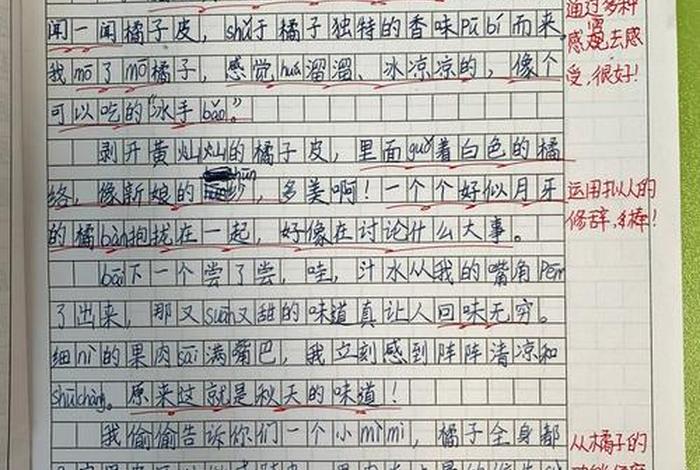 闻一闻橘子皮，shǔ于橘子独特的香味pū bí而来。
我mō了mō橘子，感觉huá溜溜、冰凉凉的，像个
可以吃的“冰手bǎo”。
剥开黄灿灿的橘子皮，里面guǒ着白色的橘
络，像新娘的hūn纱，多美啊！一个个好似月牙
的橘bàn抱拢在一起，好像在讨论什么大事。
bāi下一个尝了尝，哇，汁水从我的嘴角pēn
了出来，那又suān又甜的味道真让人回味无穷。
细nì的果肉sāi满嘴巴，我立刻感到阵阵清凉和
shūchàng。原来这就是秋天的味道！
我偷偷告诉你们一个小mì mì，橘子全身都
通过多种
感觉去感
受，很好！
运用拟人的
修辞，棒！
从橘子的